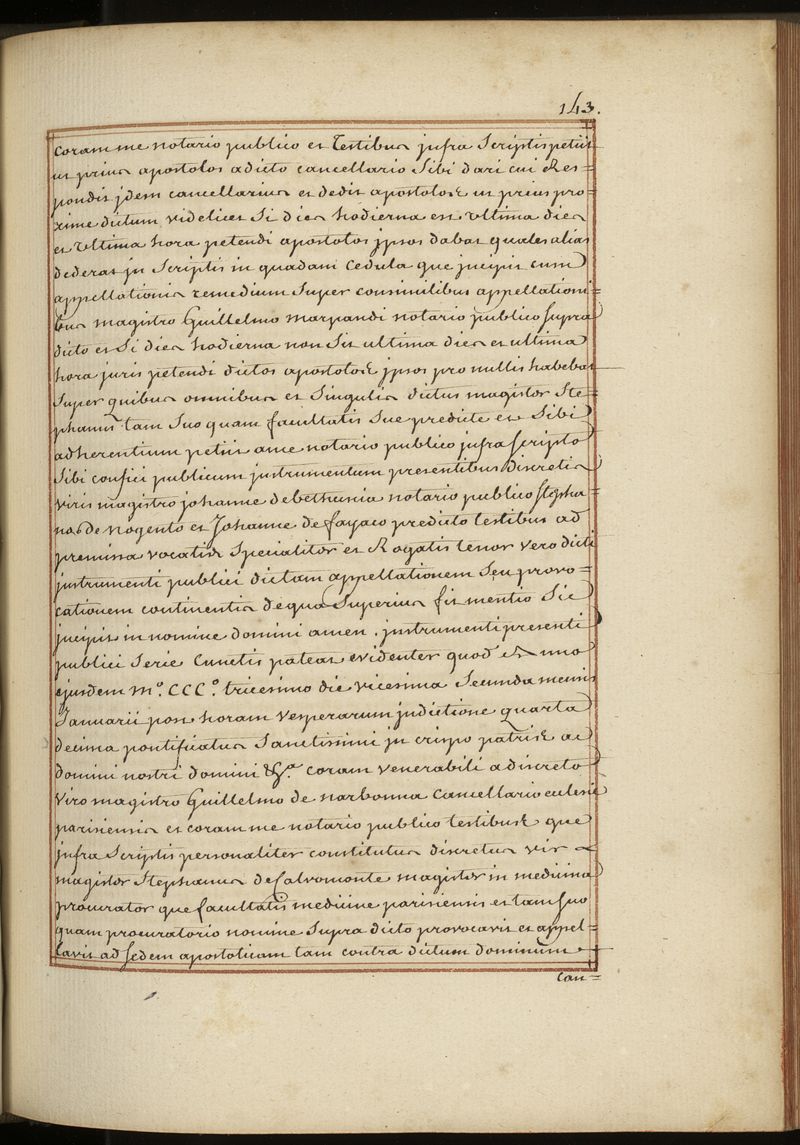 143.
coram me notario publico et testibus jnfra Scriptis petiit
ut prius apostolos a dicto cancellario Sibi dari cui Res=
pondit jdem cancellarius et dedit apostolos ut prius pro
xime dictum videlicet Si dies hodierna est ultima dies
et ultima hora petendi apostolos jpsos dabat quales alias
dederat jn Scriptis in quadam Cedula que jncipit cum
appellationis remedium Super consimilibus appellationi=
bus magistro Guillelmo marpandi notario publico Supra
dicto et Si dies hodierna non Sit ultima dies et ultima
hora juris petendi dictos apostolos jpsos pro nullis habebat
Super quibus omnibus et Singulis dictus magister Ste=
phanus tam Suo quam facultatis Sue predicte et Sibi
adherentium petiit a me notario publico jnfra Scripto
Sibi confici publicum jnstrumentum presentibus Discretis
viris magistro johanne de bethunia notario publico Stepha=
no de Nogento et Johanne de fayaco predicto testibus ad
premissa vocatis Specialiter et Rogatis tenor vero dicti
jnstrumenti publici dictam appellationem Seu provo=
cationem continentis de qua Superius fit mentio Sic
jncipit in nomine domini amen. jnstrumenti presenti
publici Serie Cunctis pateat evidenter quod Anno
ejusdem m.º CCC.º tricesimo die vicesima Secunda mensis
Januarii post horam vesperarum jndictione quarta
decima pontificatus Sanctissimi jn cristo patris ac
domini nostri domini &.ª coram venerabili a discreto
Viro magistro Guillelmo de narbonna Cancellario eclesie
parisiensis et coram me notario publico testibusque
jnfra Scriptis personaliter constitutus discretus vir
magister Stephanus de Calvomonte magister in medicina
procurator que facultatis medicine parisiensis et tam Suo
quam procuratorio nomine Supra dicto provocavit et appel=
lavit ad Sedem apostolicam tam contra dictum dominum
Can=